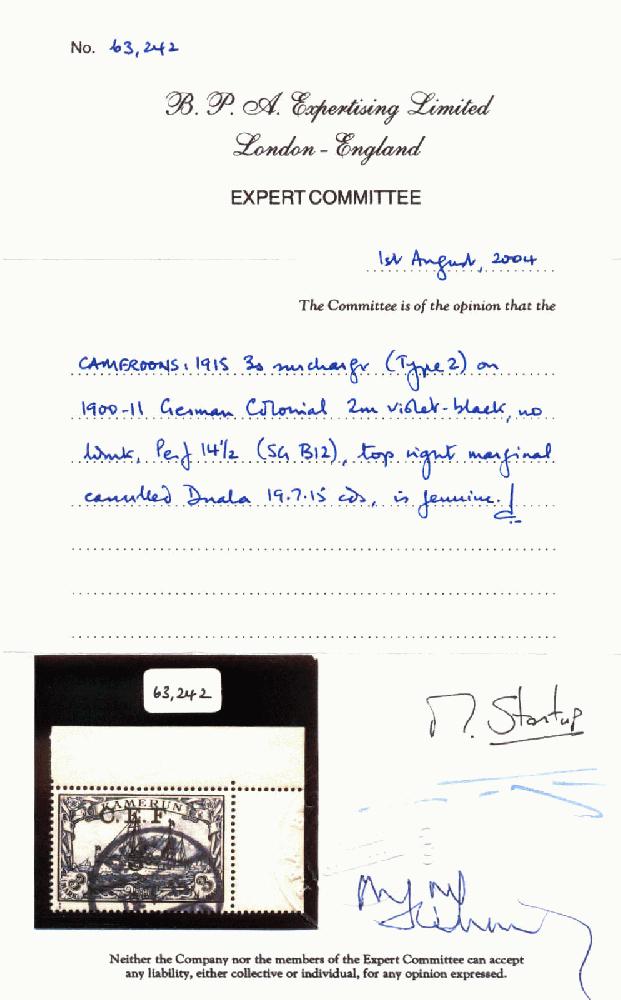 No. 63,242
B. P. A. Expertising Limited
London - England
EXPERT COMMITTEE
1st August, 2004
The Committee is of the opinion that the
CAMEROONS: 1915 3s surcharge (Type 2) on
1900-11 German Colonial 2m violet-black, no
wmk, Perf 14½ (SG B12), top right marginal
cancelled Duala 19.7.15 cds, is genuine.
63,242
KAMERUN
C. E. F.
M. Startup
Neither the Company nor the members of the Expert Committee can accept
any liability, either collective or individual, for any opinion expressed.